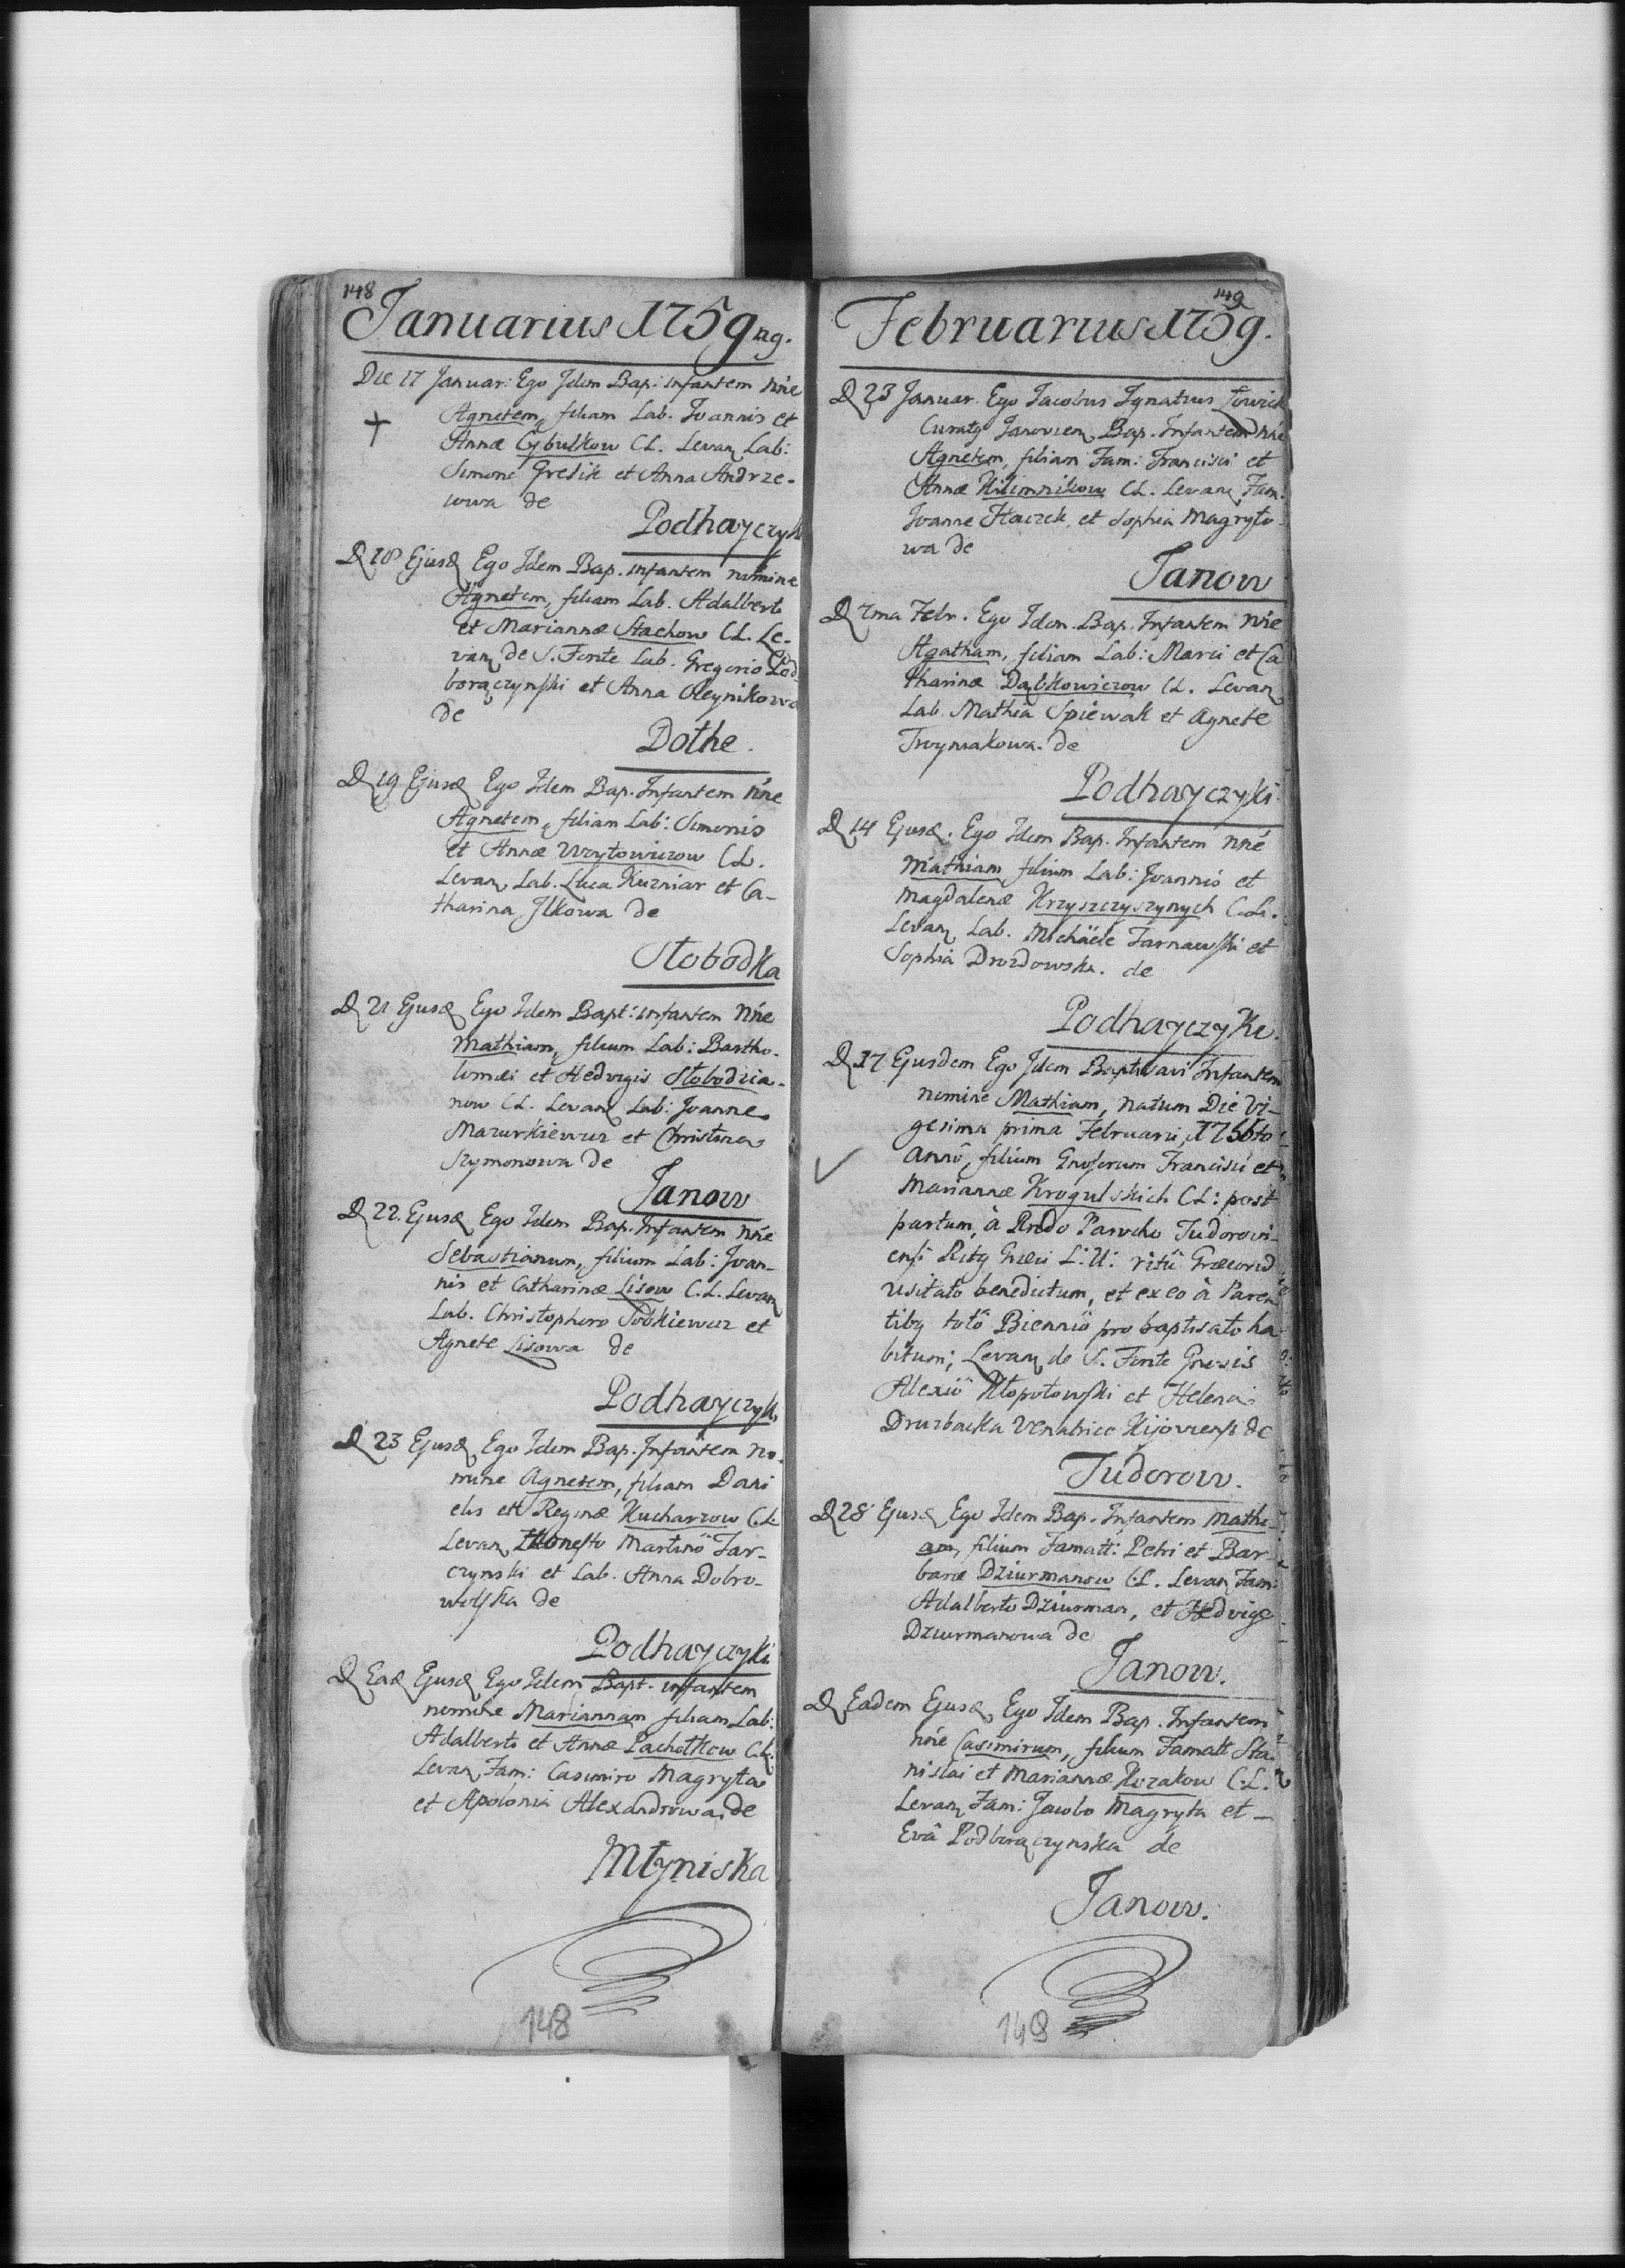 148
Januarius 1759
Die 17 Januar: Ego Idem Bap: infantem nne
Agnetem, filiam Lab. Joannis et
Annæ Cybulkow CL. Levan Lab:
Simone Gresik et Anna Andrze-
iowa de
Podhayczyk
D 18 Ejusd Ego Idem Bap. infantem nomine
Agnetem, filiam Lab. Adalberti
et Mariannæ Stachow CL. Le-
van de S. Fonte Lab. Gregorio Pod-
borączynski et Anna Oleynikowa
de
Dołhe.
D 19 Ejusd Ego Idem Bap. Infantem nne
Agnetem, filiam Lab: Simonis
et Annæ Wrytowiczow CL.
Levan Lab. Luca Kuzniar et Ca-
tharina Ilkowa de
Słobodka
D 21 Ejusd Ego Idem Bapt: infantem nne
Mathiam, filium Lab: Bartho-
lomæi et Hedvigis Słobodzia-
now CL. Levan Lab: Joanne
Mazurkiewicz et Christina
Szymonowa de
Janow
D 22. Ejusd Ego Idem Bap. Infantem nne
Sebastianum, filium Lab: Joan-
nis et Catharinæ Lisow C.L. Levan
Lab. Christophoro Sobkiewicz et
Agnete Lisowa de
Podhayczyk
D 23 Ejusd Ego Idem Bap. Infantem no-
mine Agnetem, filiam Dani
elis et Reginæ Kucharzow C.L.
Levan Honesto Martino Tar-
czynski et Lab. Anna Dobro-
wolska de
Podhayczyki
D Ead Ejusd Ego Idem Bapt. infantem
nomine Mariannam filiam Lab:
Adalberti et Annæ Pachołkow C.L.
Levan Fam: Casimiro Magryta
et Apolonia Alexandrowa de
Młyniska
148
149
Februarius 1759.
D 23 Januar. Ego Jacobus Ignatius
Curatg Janovien Bap. Infantem nne
Agnetem, filiam Fam: Francisci et
Annæ Kilimnikow CL. Levan Fam.
Joanne Haczek, et Sophia Magryto-
wa de
Janow
D 7ma Febr. Ego Idem Bap. Infantem nne
Agatham, filiam Lab: Marci et Ca
tharinæ Dąbkowiczow CL. Levan
Lab. Mathia Spiewak et Agnete
Trzyniakowa. de
Podhayczyki
D 14 Ejusd. Ego Idem Bap. Infantem nne
Mathiam filium Lab: Joannis et
Magdalenæ Krzyszczyszynych C.L.
Levan Lab. Michaele Tarnawski et
Sophia Drozdowska. de
Podhayczyki.
D 17 Ejusdem Ego Idem Baptisavi Infantem
nomine Mathiam, natum Die Vi-
gesima prima Februarii, 1756to
anno, filium Gnosorum Francisci et
Mariannæ Krogulskich CL: post
partum, à Rndo Parocho Tudorovi-
ensi Ritg Græci L: U: ritü Græcord
usitato benedictum, et ex eo à Paren
tibg totô Bienniô pro baptisato ha-
bitum; Levan de S. Fonte Gnosis
Alexiô Kłopotowski et Helena
Druzbacka Venatrice Kijoviensi de
Tudorow.
D 28 Ejusd Ego Idem Bap. Infantem Mathi-
am, filium Famatt: Petri et Bar-
baræ Dziurmanow C.L. Levan Fam:
Adalberto Dziurman, et Hedvige
Dziurmanowa de
Janow.
D Eadem Ejusd, Ego Idem Bap. Infantem
nne Casimirum, filium Famatt Sta-
nislai et Mariannæ Kozakow C.L.
Levan Fam: Jacobo Magryta et
Evâ Podborączynska de
Janow.
149